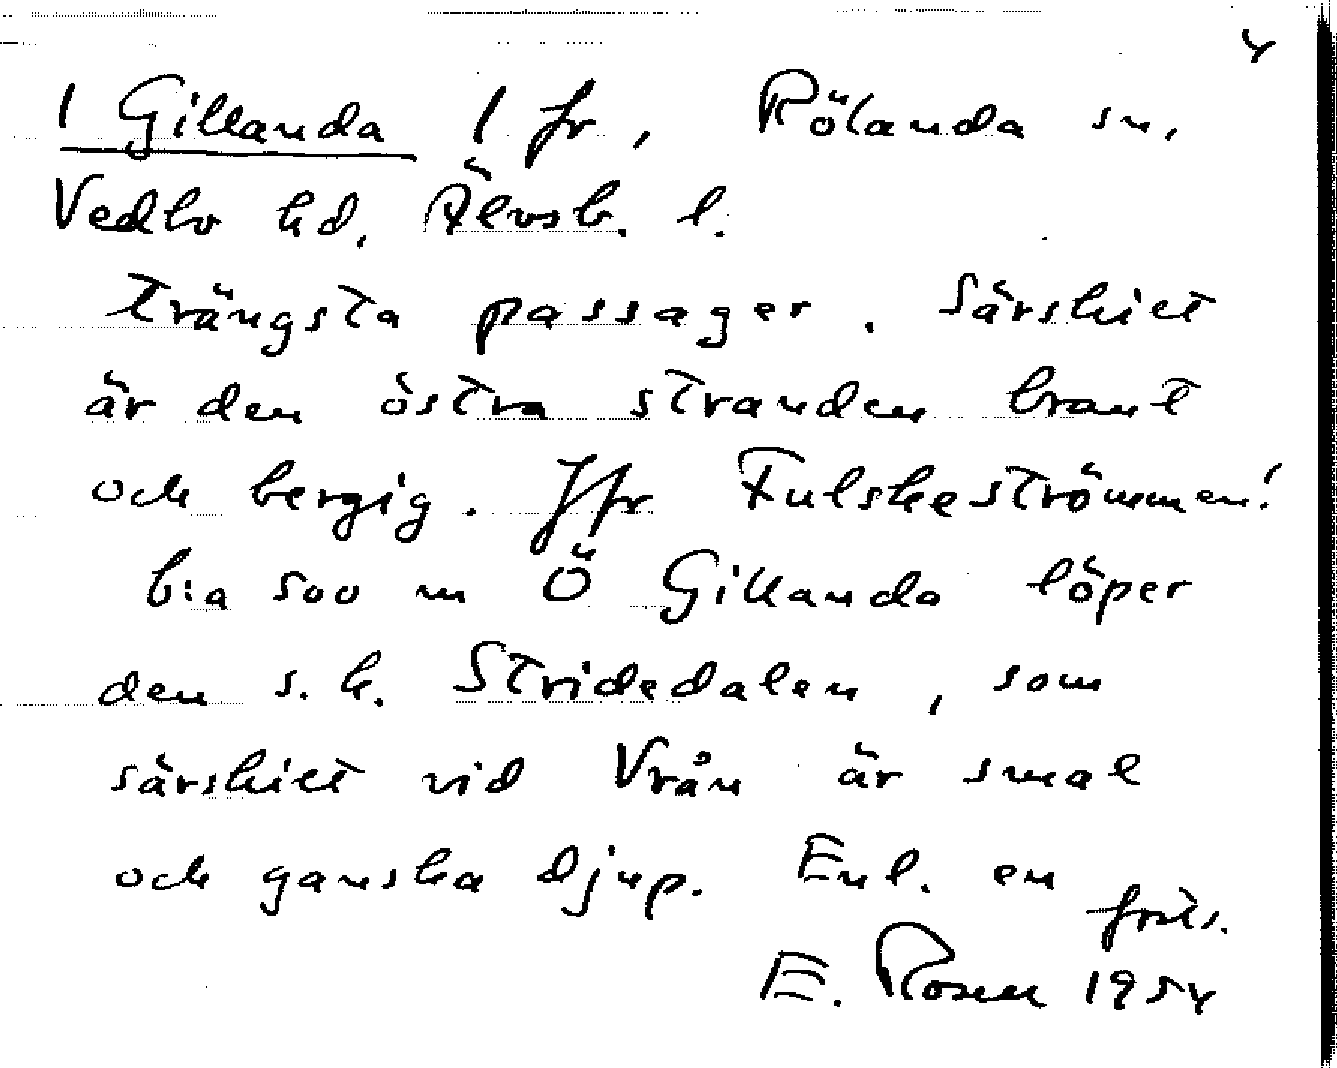 4
1 Gillanda 1 fr, Rölanda sn,
Vedbo hd, Älvsb. l.
trängsta passager. Särskilt
är den östra stranden brant
och bergig. Jfr Fulskeströmmen!
b:a 500 m Ö Gillanda löper
den s.k. Stridedalen, som
särskilt vid Vrån är smal
och ganska djup. Enl. en
forts.
E. Rosen 1954